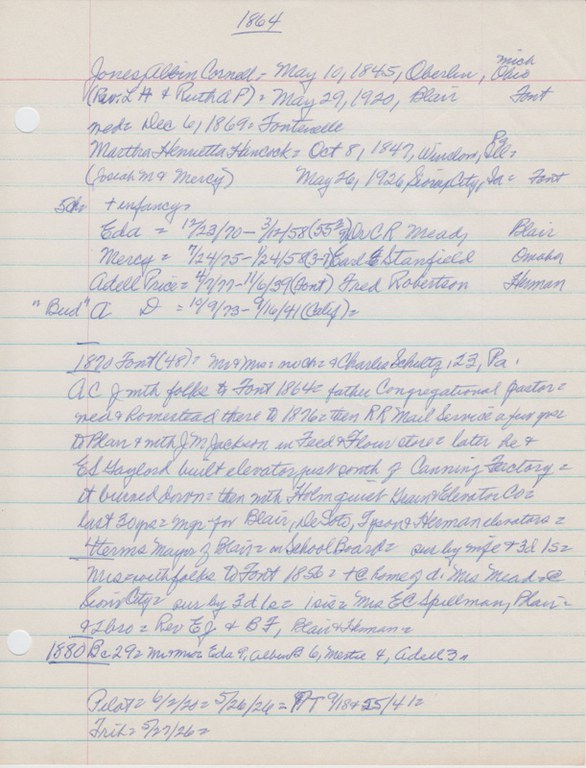 1864
Jones, Albin Cornell = May 10, 1845, Oberlin, Mich Ohio
(Rev. L H & Ruth A P) = May 29, 1920, Blair Font
med = Dec 6, 1869 = Fontenelle
Martha Henrietta Hancock = Oct 8, 1847, Ill =
(Josiah M & Mercy) May 26, 1926, Sioux City, Ia = Font
5ch + infancy =
Eda = 12/23/70 - (55 Dr C R Mead, Blair
Mercy = 7/24/75 - 1/24/58 Earl E Stanfield Omaha
Adell Price = 4/2/77 - 11/6/39 (Font) Fred Robertson Herman
"Bud" A D = 10/9/73 - 9/16/41 (Calif) =
1870 Font (48) = Mr & Mrs = no ch = & Charlie Schultz, 23, Pa.
A C J with folks to Font 1864 = father Congregational pastor =
med & Homestead there to 1876 = then RR Mail Service a few yrs
to Blair & with J M Jackson in Feed & Flour store = later he &
E S Gaylord built elevator just south of Canning Factory =
it burned down = then with Holmquist Grain & Elevator Co =
last 30 yrs = mgr for Blair, DeSoto, Tyson & Herman elevators =
4 terms Mayor of Blair = on School Board = sur by wife & 3 d 1 s =
Mrs = with folks to Font 1856 = + @ home of d. Mrs Mead = @
Sioux City = sur by 3 d 1 s = 1 sis = Mrs E C Spillman, Blair =
& 2 bro = Rev E J & B F, Blair & Herman =
1880 Bc 29 = Mr Mrs = Eda 9, Albin B 6, 4, Adell 3 =
Pilot = 6/2/20 = 5/26/26 = 9/18 & 25/41 =
Trib = 5/27/26 =